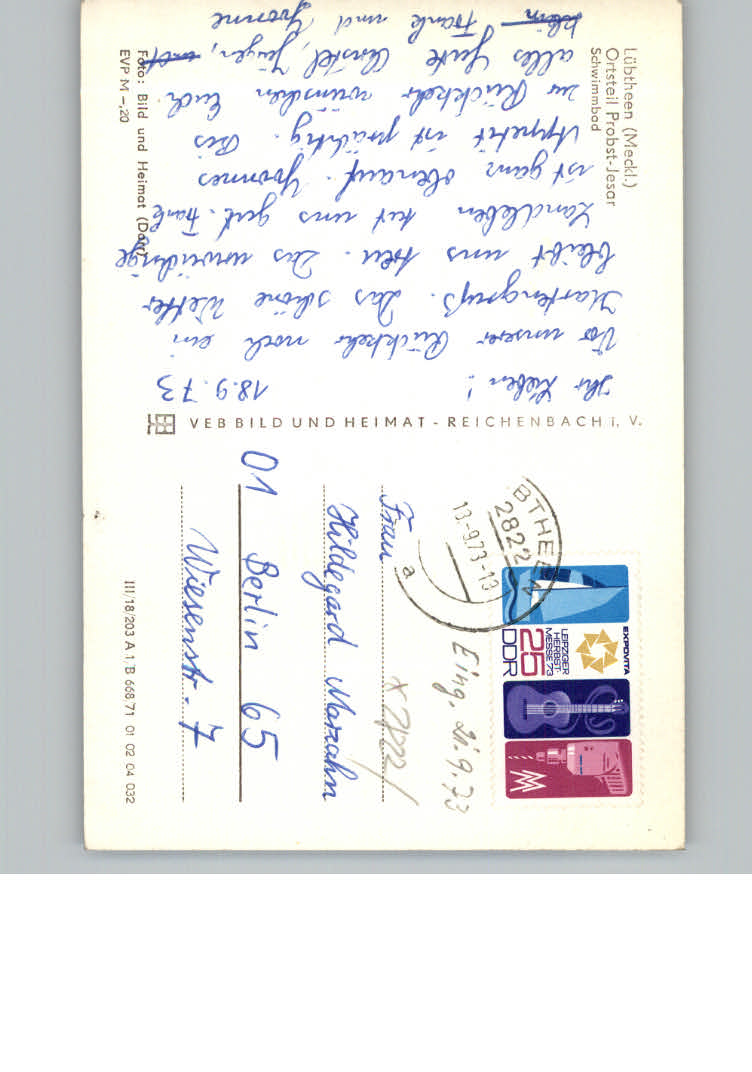 Lübtheen (Meckl.)
Ortsteil Probst-Jesar
Schwimmbad
Ihr Lieben! 18.9.73
Vor unserer Rückkehr noch ein
Kartengruß. Das schöne Wetter
bleibt uns treu. Das unruhige
Landleben tut uns gut. Frank
ist ganz obenauf. Yvonnes
Appetit ist prächtig. Bis
zur Rückkehr wünschen Euch
alles Gute Christel, Jürgen,
Frank und Yvonne
Foto: Bild und Heimat (Dörr)
EVP M -,20
VEB BILD UND HEIMAT - REICHENBACH I. V.
BTHEEN
2822
13-9.73-13
a
EXPOVITA
LEIPZIGER
HERBST-
MESSE 73
25
DDR
Eing. 21.9.73
Frau
Hildegard Marzahn
01 Berlin 65
Wiesenstr. 7
III/18/203 A 1 B 668/71 01 02 04 032